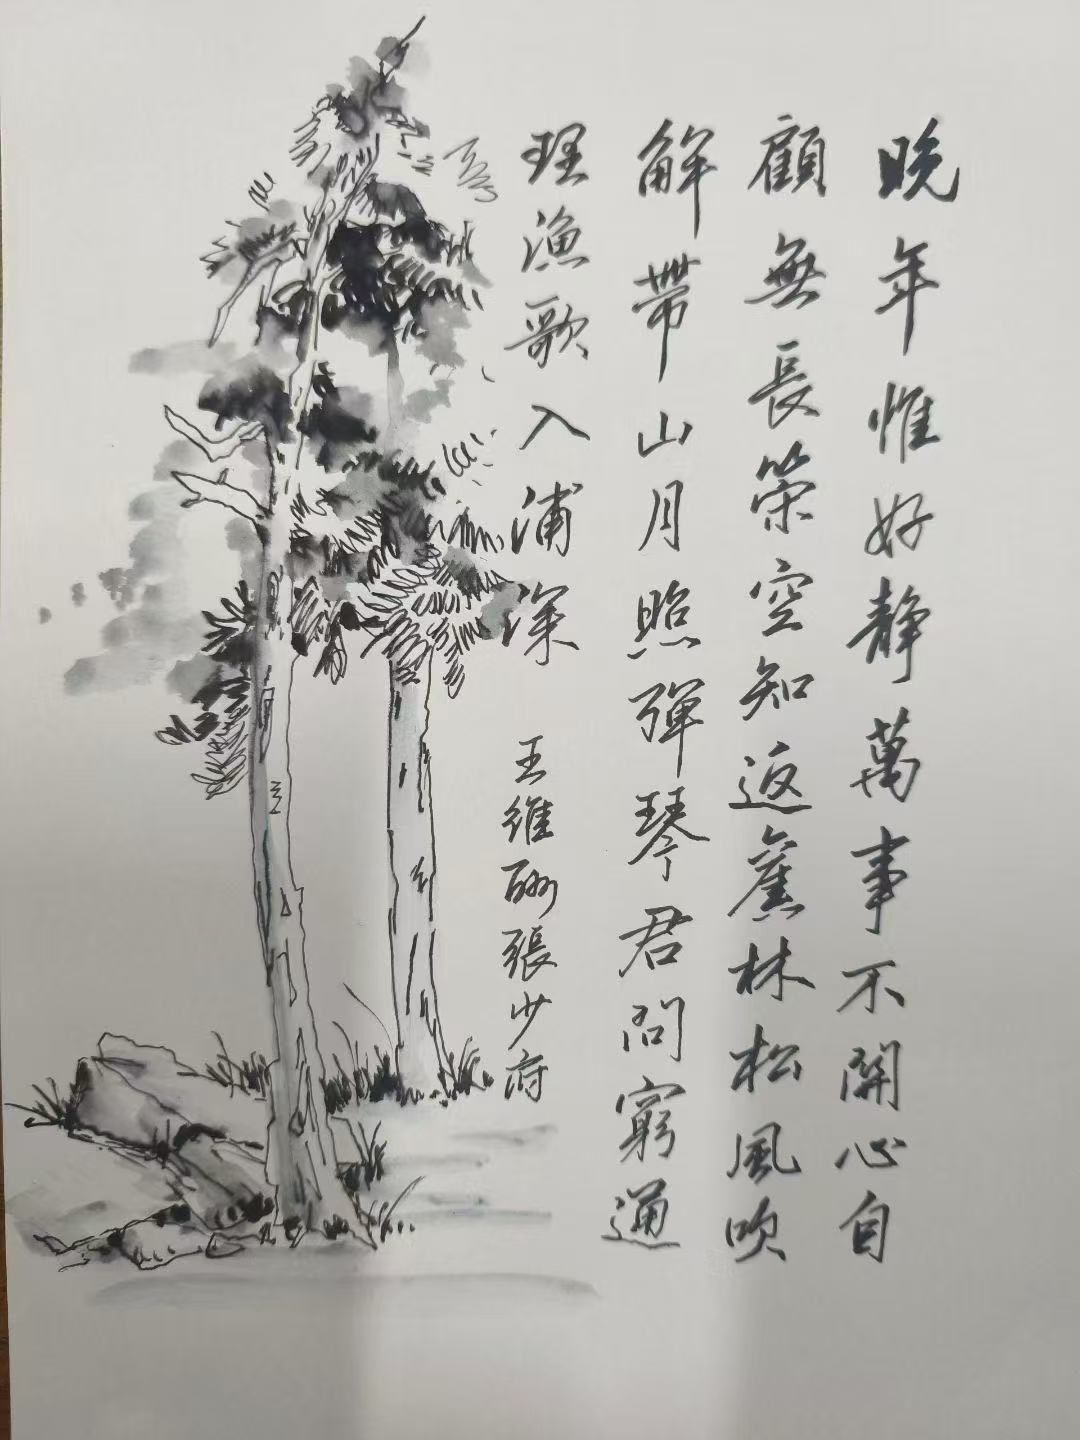 晚年惟好静萬事不開心自
顧無長策空知返舊林松風吹
解帶山月照弹琴君問窮通
理漁歌入浦深
王維酬張少府